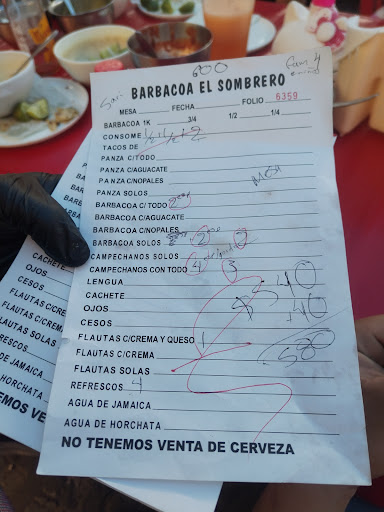 600
BARBACOA EL SOMBRERO
MESA FECHA FOLIO 6359
BARBACOA 1K 3/4 1/2 1/4
CONSOME 1/2 1/2 + 2
TACOS DE
PANZA C/TODO
PANZA C/AGUACATE
PANZA C/NOPALES
PANZA SOLOS
BARBACOA C/ TODO 2
BARBACOA C/AGUACATE
BARBACOA C/NOPALES
BARBACOA SOLOS 2
CAMPECHANOS SOLOS
CAMPECHANOS CON TODO 4 3
LENGUA
CACHETE
OJOS
CESOS
FLAUTAS C/CREMA Y QUESO 1
FLAUTAS C/CREMA
FLAUTAS SOLAS
REFRESCOS 4
AGUA DE JAMAICA
AGUA DE HORCHATA
NO TENEMOS VENTA DE CERVEZA
$ 540
40
580
CACHETE
OJOS
CESOS
FLAUTAS C/
FLAUTAS C/CR
FLAUTAS SOLAS
REFRESCOS
DE JAMAICA
DE HORCHATA
EMOS VENT